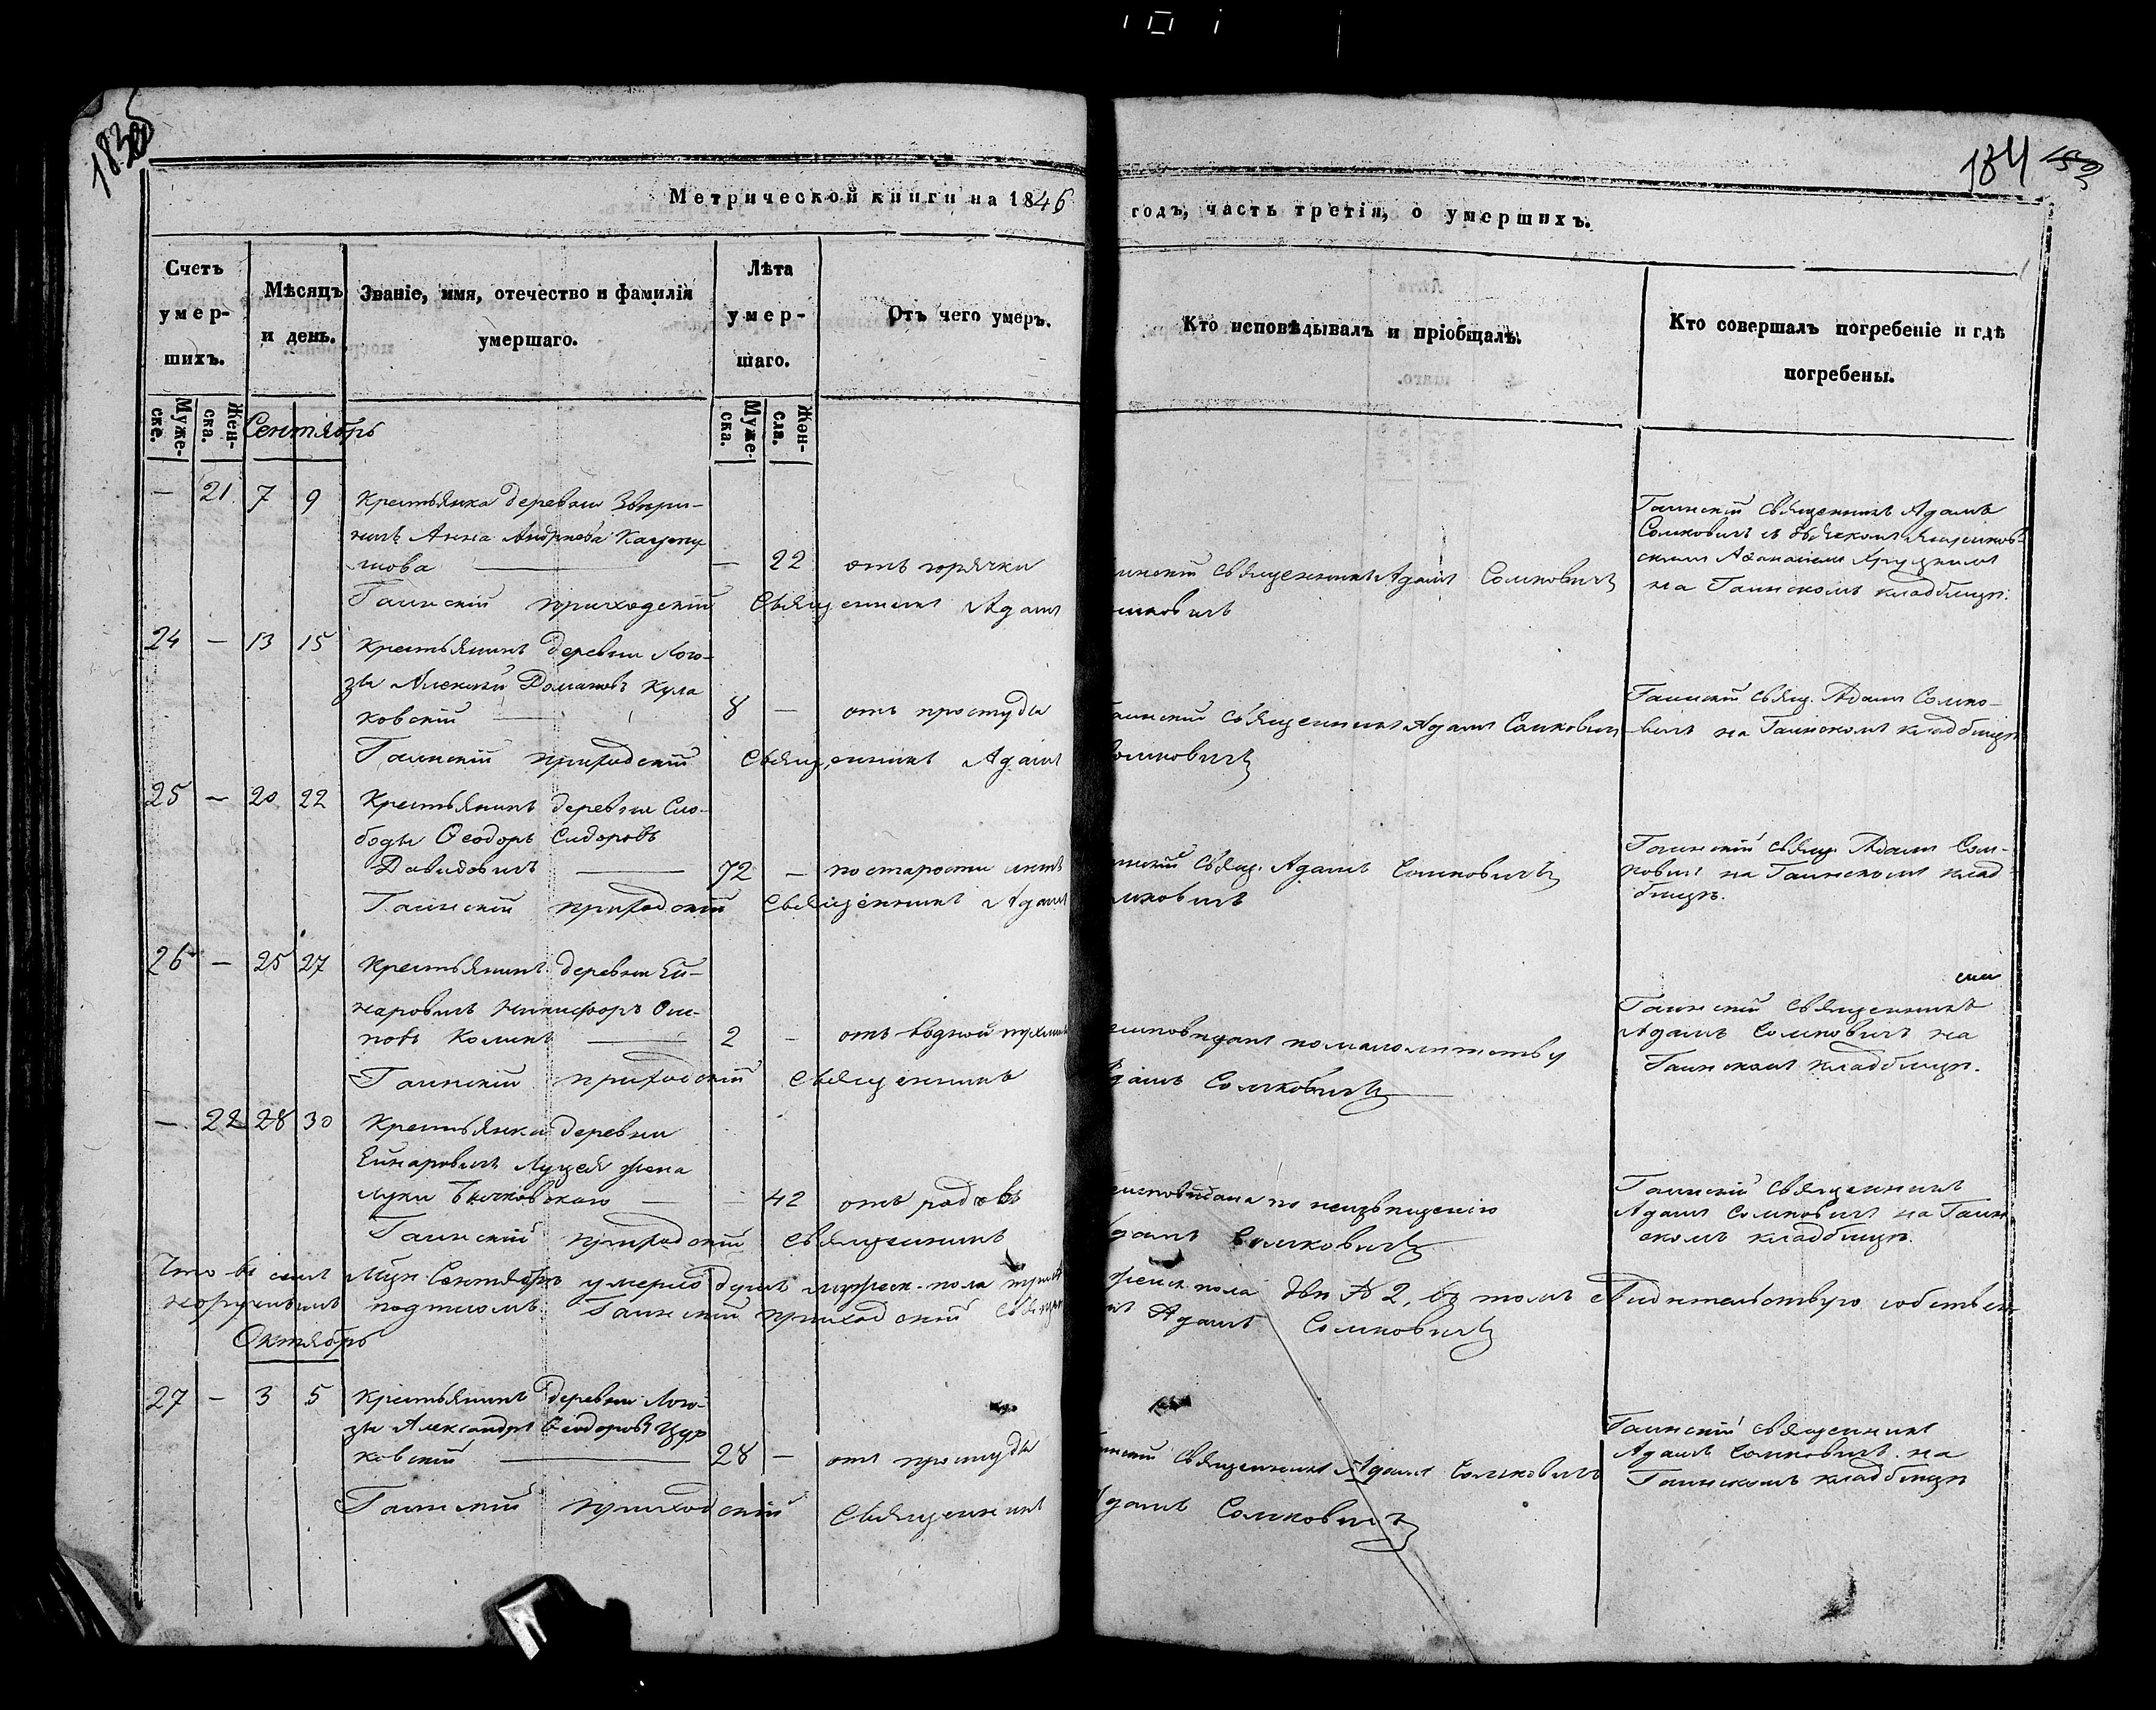 184
Метрической книги на 1846 годъ, часть третія, о умершихъ.
Счетъ умер-шихъ.
Мѣсяцъ и день.
Званіе, имя, отечество и фамилія умершаго.
Лѣта умер-шаго.
Отъ чего умеръ.
Кто исповѣдывалъ и пріобщалъ.
Кто совершалъ погребеніе и гдѣ погребены.
Муже-ске.
Жен-ска.
Муже-ска.
Жен-сла.
Сентябрь
— 21 7 9 Крестьянка деревни
Анна Андреева
— 22 отъ горячки
священникъ Адамъ Сомковичъ
Гаинскій священникъ Адамъ
Сомковичъ съ
на Гаинскомъ кладбищѣ.
Гаинскій приходскій Священникъ Адамъ
24 — 13 15 Крестьянинъ деревни Лого-
зы Алексѣй Романовъ Кула
ковскій 8 — отъ простуды
Гаинскій священникъ Адамъ Сомковичъ
Гаинскій свящ. Адамъ Сомко-
вичъ на Гаинскомъ кладбищѣ
Гаинскій приходскій Священникъ Адамъ Сомковичъ
25 — 20 22 Крестьянинъ деревни Сло-
боды Ѳеодоръ Сидоровъ
Давидовичъ 72 — по старости лѣтъ
Свящ. Адамъ Сомковичъ
Гаинскій свящ. Адамъ Сом-
ковичъ на Гаинскомъ клад-
бищѣ.
Гаинскій приходскій Священникъ Адамъ
26 — 25 27 Крестьянинъ деревни Ей-
наровичъ Никифоръ Оси-
повъ Коминъ 2 — отъ водной
по малолѣтству
Гаинскій священникъ
Адамъ Сомковичъ на
Гаинскомъ кладбищѣ.
Гаинскій приходскій священникъ Адамъ Сомковичъ
— 22 28 30 Крестьянка деревни
Ейнаровичъ жена
Луки
— 42 отъ родовъ
по неизвѣщенію
Гаинскій священникъ
Адамъ Сомковичъ на Гаин
скомъ кладбищѣ.
Гаинскій приходскій священникъ Адамъ Сомковичъ
Что въ семъ Мцѣ Сентябрѣ умерло душъ мужеск. пола женск. пола двѣ № 2, въ томъ свидѣтельствую собствен-
норучнымъ подписомъ Гаинскій приходскій Священникъ Адамъ Сомковичъ
Октябрь
27 — 3 5 Крестьянинъ деревни Лого-
зы Александръ Ѳеодоровъ Цур
ковскій 28 — отъ простуды
священникъ Адамъ Сомковичъ
Гаинскій священникъ
Адамъ Сомковичъ на
Гаинскомъ кладбищѣ
Гаинскій приходскій священникъ Адамъ Сомковичъ